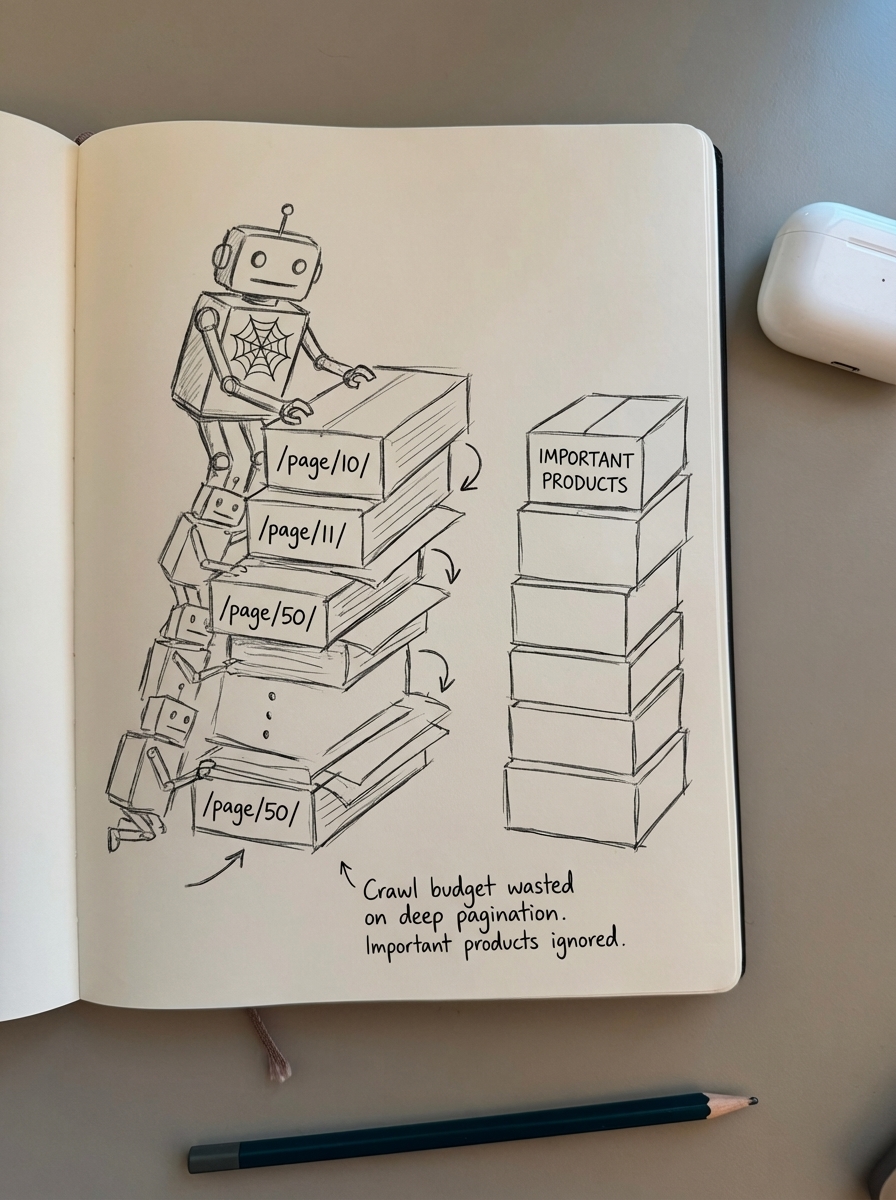 /page/10/
/page/11/
/page/50/
/page/50/
IMPORTANT
PRODUCTS
Crawl budget wasted
on deep pagination.
Important products ignored.